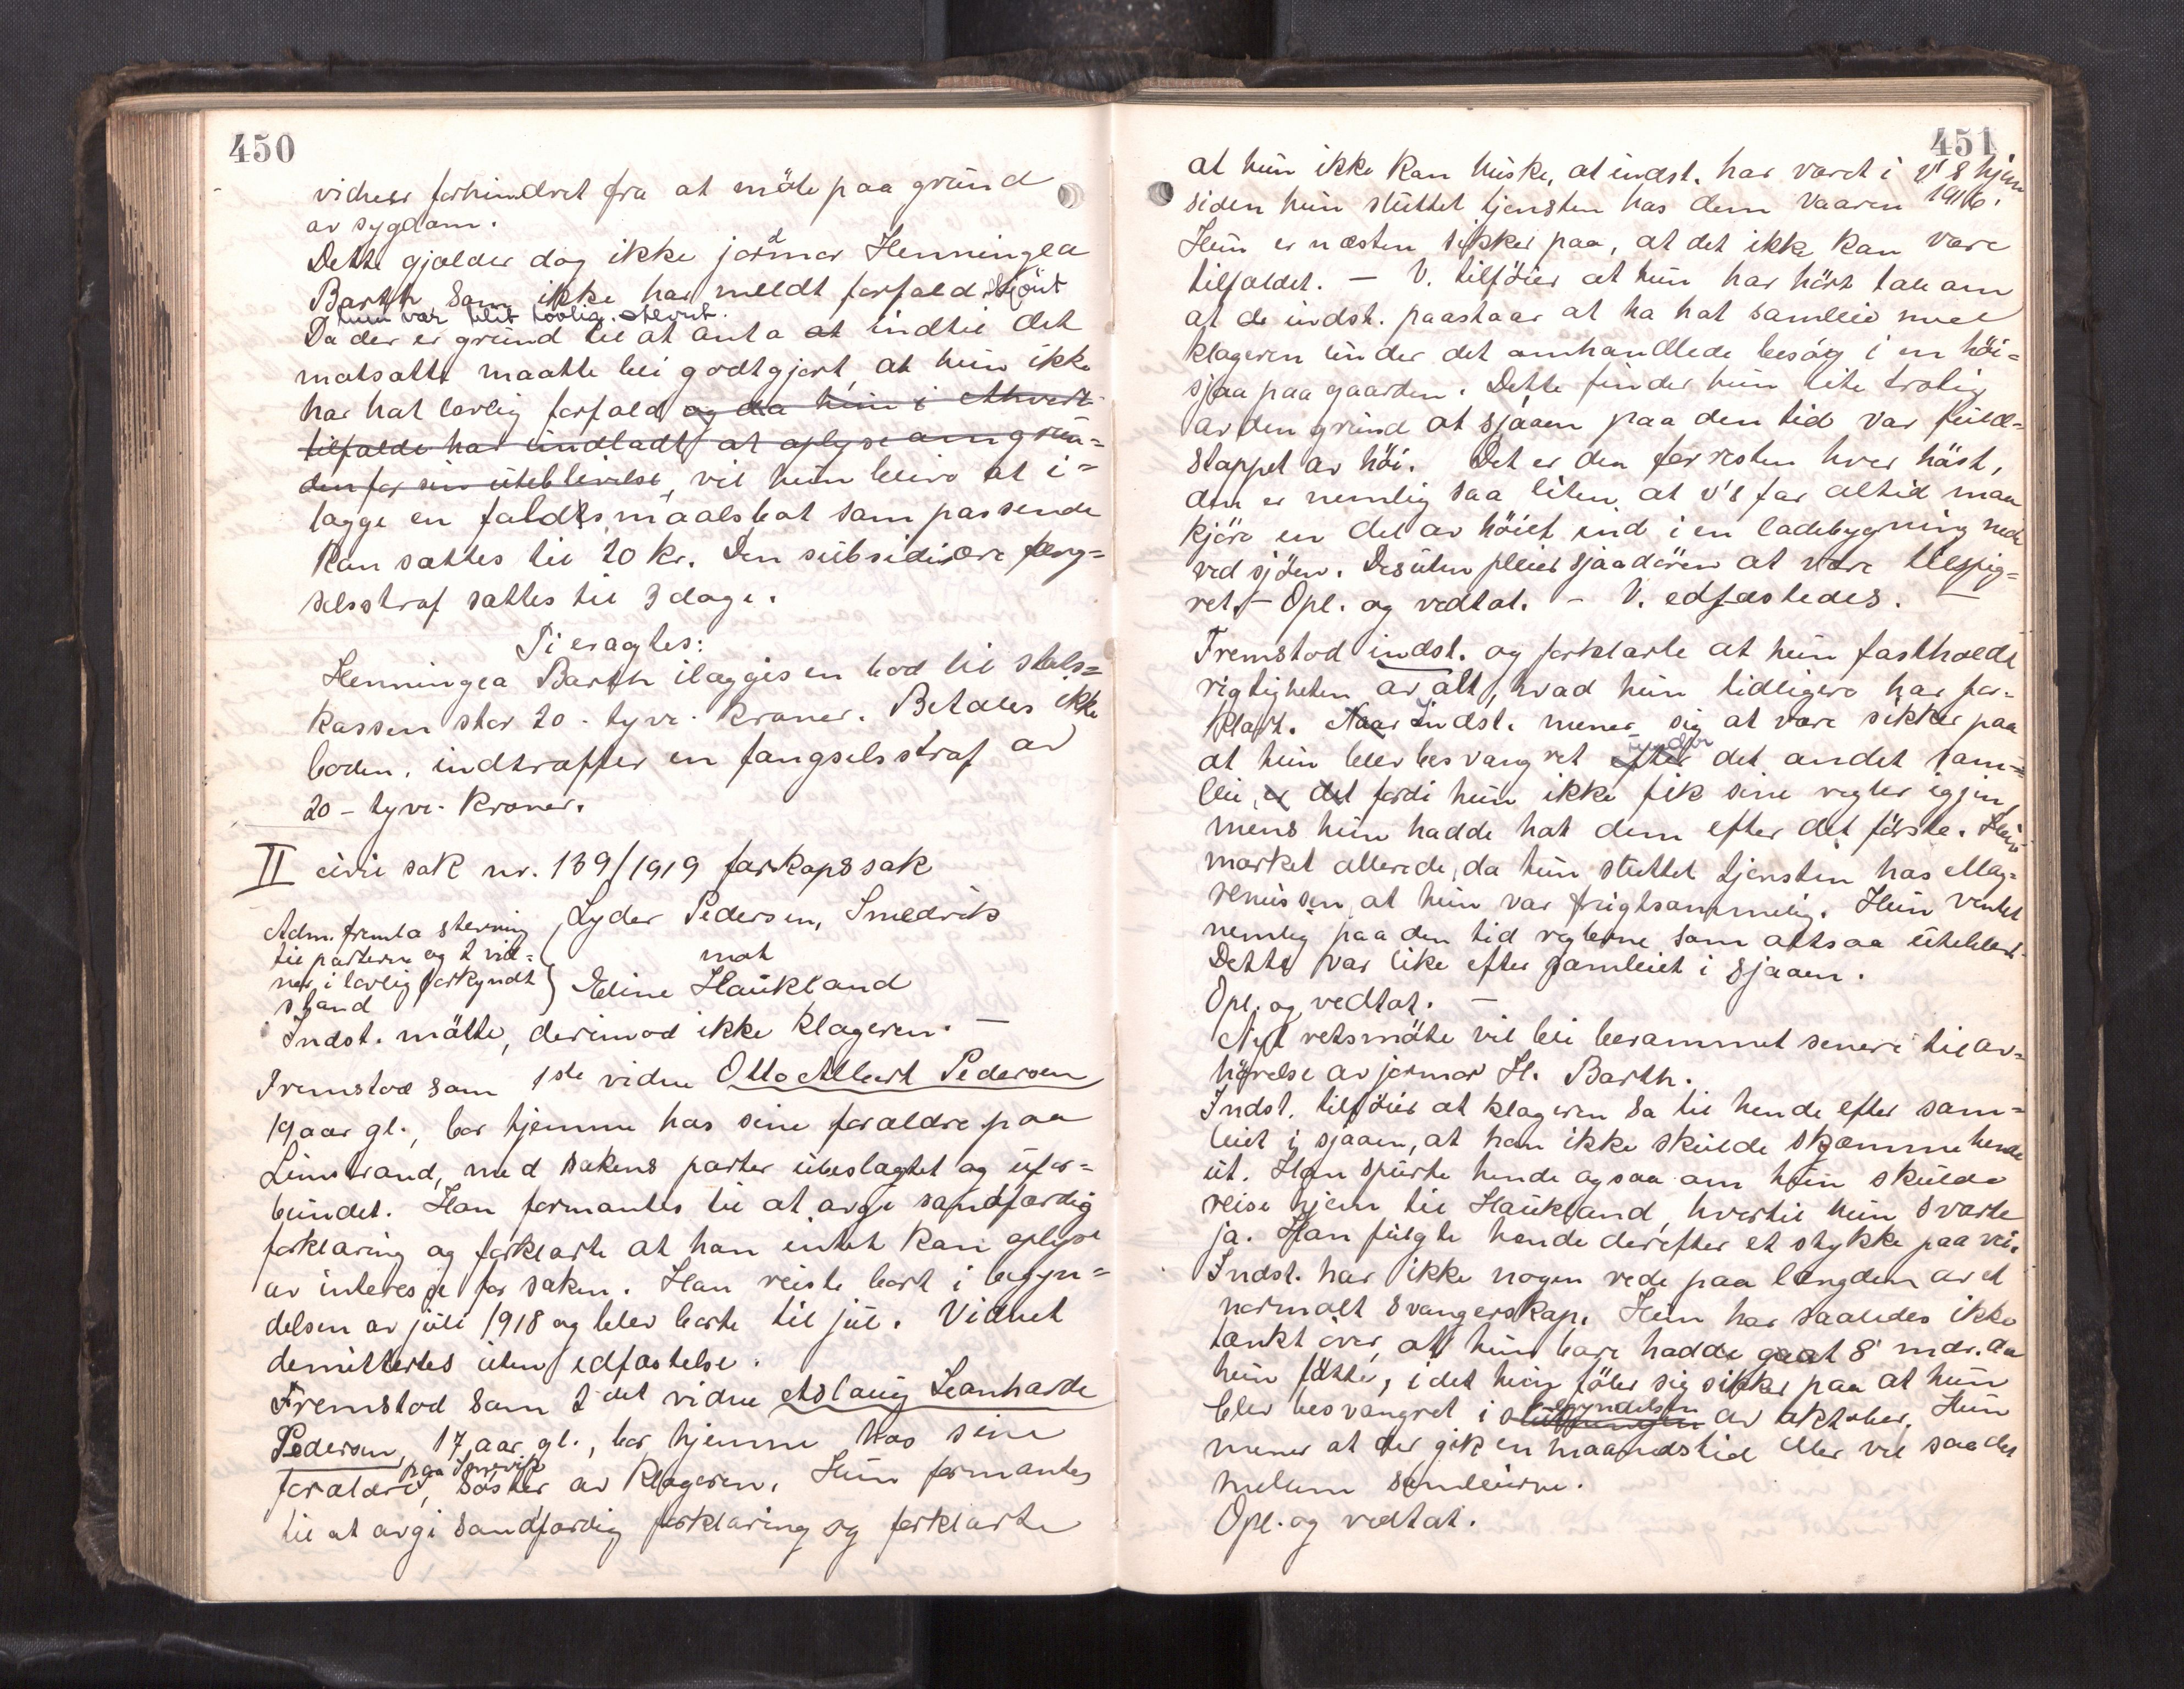 450
vidner forhindret fra at möte paa grund
av sygdom.
Dette gjælder dog ikke jordmor Henningea
Barth som ikke har meldt forfald, skjönt
hun var blit lovlig stevnt.
Da der er grund til at anta at indtil det
motsatte maatte bli godtgjort, at hun ikke
har hat lovlig forfald og da hun i ethvert
tilfælde har undladt at oplyse om grun=
den for sin uteblivelse, vil hun bli at i=
lægge en faldsmaalsbot som passende
kan sættes til 20 kr. Den subsidiære fæng=
selsstraf sættes til 3 dage.
Ti eragtes:
Henningea Barth ilægges en bod til stats=
kassen stor 20 - tyve - kroner. Betales ikke
boden, indtræffer en fængselsstraf av
20 - tyve - kroner.
II civil sak nr. 139/1919 farskapssak
Adm. fremla stevning
til parterne og 2 vid=
ner i lovlig forkyndt
stand
Lyder Pedersen, Smedvik
mot
Edine Haukland
Indst. mötte, derimod ikke klageren. —
Fremstod som 1ste vidne Otto Albert Pedersen
19 aar gl., bor hjemme hos sine forældre paa
Limstrand, med sakens parter ubeslægtet og ufor=
bundet. Han formantes til at avgi sandfærdig
forklaring og forklarte at han intet kan oplyse
av interesse for saken. Han reiste bort i begyn=
delsen av juli 1918 og blev borte til jul. Vidnet
demitteres uten edfæstelse.
Fremstod som 2det vidne Aslaug Leonharde
Pedersen, 17 aar gl., bor hjemme hos sine
forældre paa Smevik, söster av klageren. Hun formantes
til at avgi sandfærdig forklaring og forklarte
451
at hun ikke kan huske, at indst. har været i v's hjem
siden hun sluttet tjensten hos dem vaaren 1916.
Hun er næsten sikker paa, at det ikke kan være
tilfældet. — V. tilföier at hun har hört tale om
at de indst. paastaar at ha hat samleie med
klageren under det omhandlede besög i en höi=
sjaa paa gaarden. Dette finder hun lite trolig
av den grund at sjaaen paa den tid var fuld=
stappet av höi. Det er den forresten hver höst,
den er nemlig saa liten, at v's far altid maa
kjöre en del av höiet ind i en ladebygning nede
ved sjöen. Desuten pleier sjaadören at være tilspig=
ret. — Opl. og vedtat. — V. edfæstedes. —
Fremstod indst. og forklarte at hun fastholdt
rigtigheten av alt, hvad hun tidligere har for=
klart. Naar Indst. mener sig at være sikker paa
at hun blev besvangret efter under det andet sam=
leie, er det fordi hun ikke fik sine regler igjen,
mens hun hadde hat dem efter det förste. Hun
merket allerede, da hun sluttet tjensten hos Mag=
nussen, at hun var frugtsommelig. Hun ventet
nemlig paa den tid reglerne som altsaa uteblev.
Dette var like efter samleiet i sjaaen.
Opl. og vedtat. —
Nyt retsmöte vil bli berammet senere til av=
hörelse av jormor H. Barth.
Indst. tilföier at klageren sa til hende efter sam=
leiet i sjaaen, at han ikke skulde skjæmme hende
ut. Han spurte hende ogsaa om hun skulde
reise hjem til Haukland, hvortil hun svarte
ja. Han fulgte hende derefter et stykke paa vei.
Indst. har ikke nogen rede paa længden av et
normalt svangerskap. Hun har saaledes ikke
tænkt över, at hun bare hadde gaat 8 mdr. da
hun fötte, idet hun föler sig sikker paa at hun
blev besvangret i slutningen begyndelsen av oktober. Hun
mener at der gik en maanedstid eller vel saa det
mellem samleierne.
Opl. og vedtat.